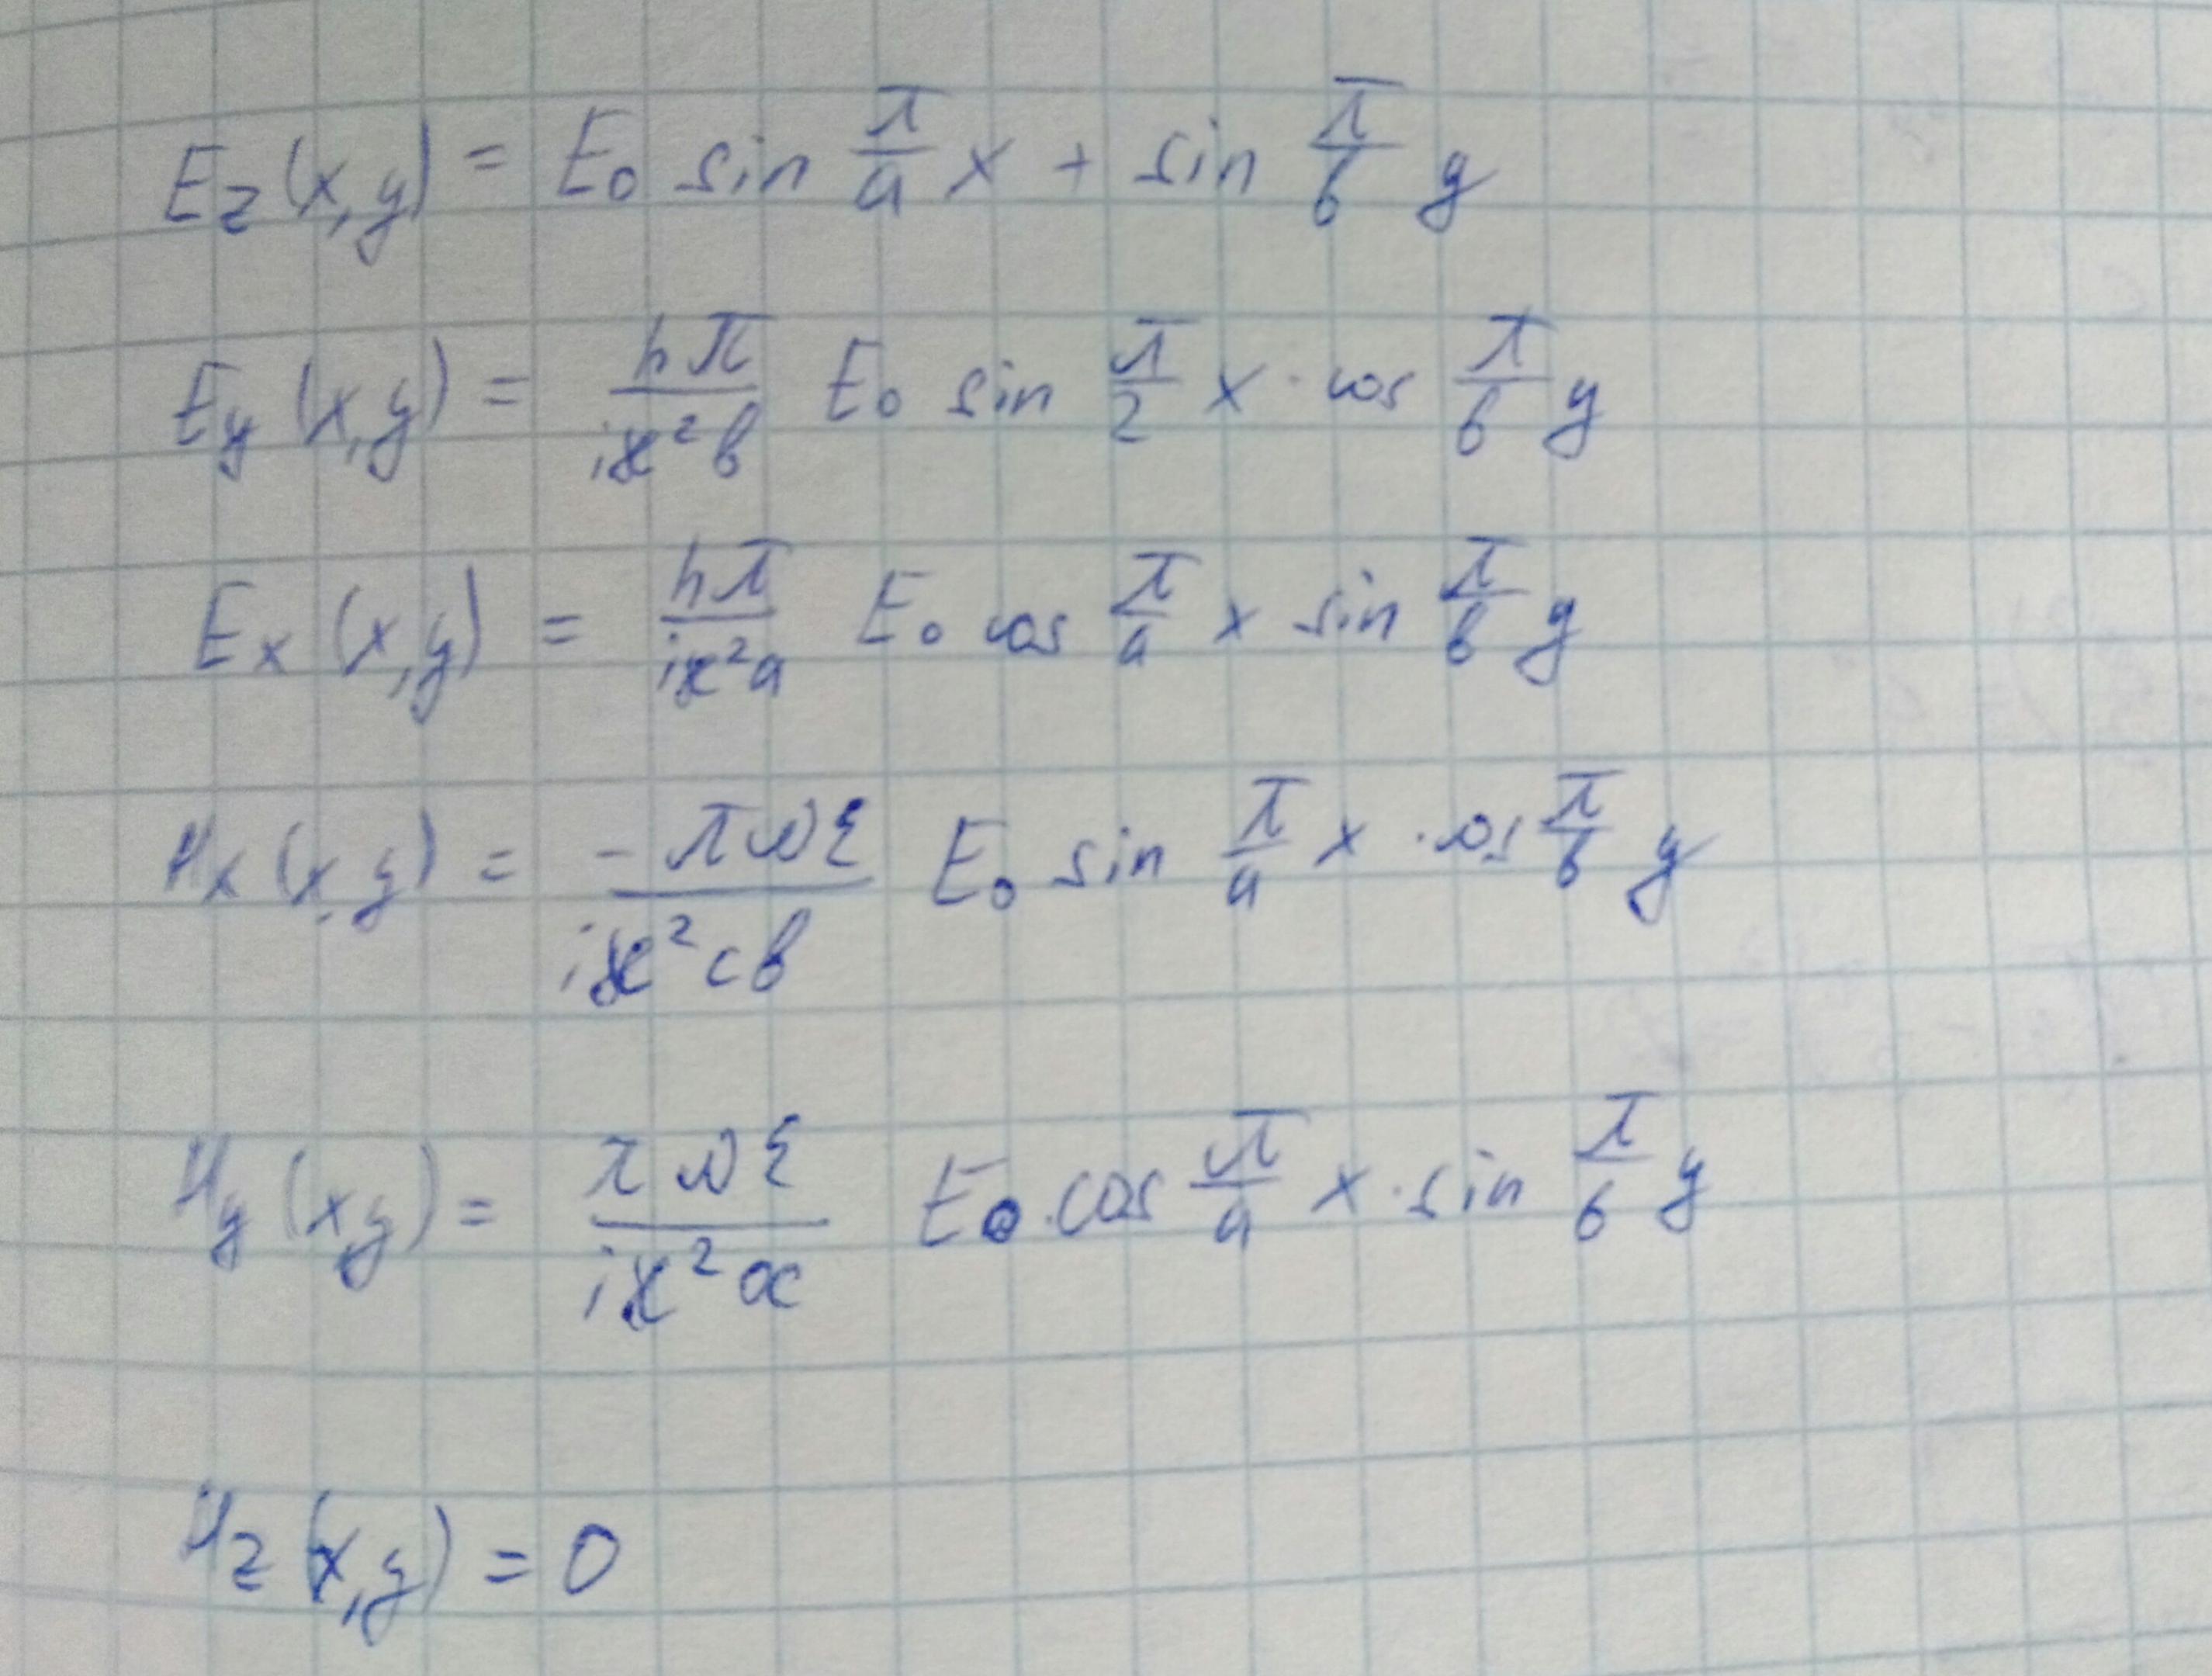 E_z (x,y) = E_0 sin π/a x + sin π/б y
E_y (x,y) = hπ/iæ²b E_0 sin π/2 x · cos π/б y
E_x (x,y) = hπ/iæ²a E_0 cos π/a x sin π/b y
H_x (x,y) = -πωε/iæ²cb E_0 sin π/a x · cos π/б y
H_y (x,y) = πωε/iæ²ac E_0 · cos π/a x · sin π/б y
H_z (x,y) = 0